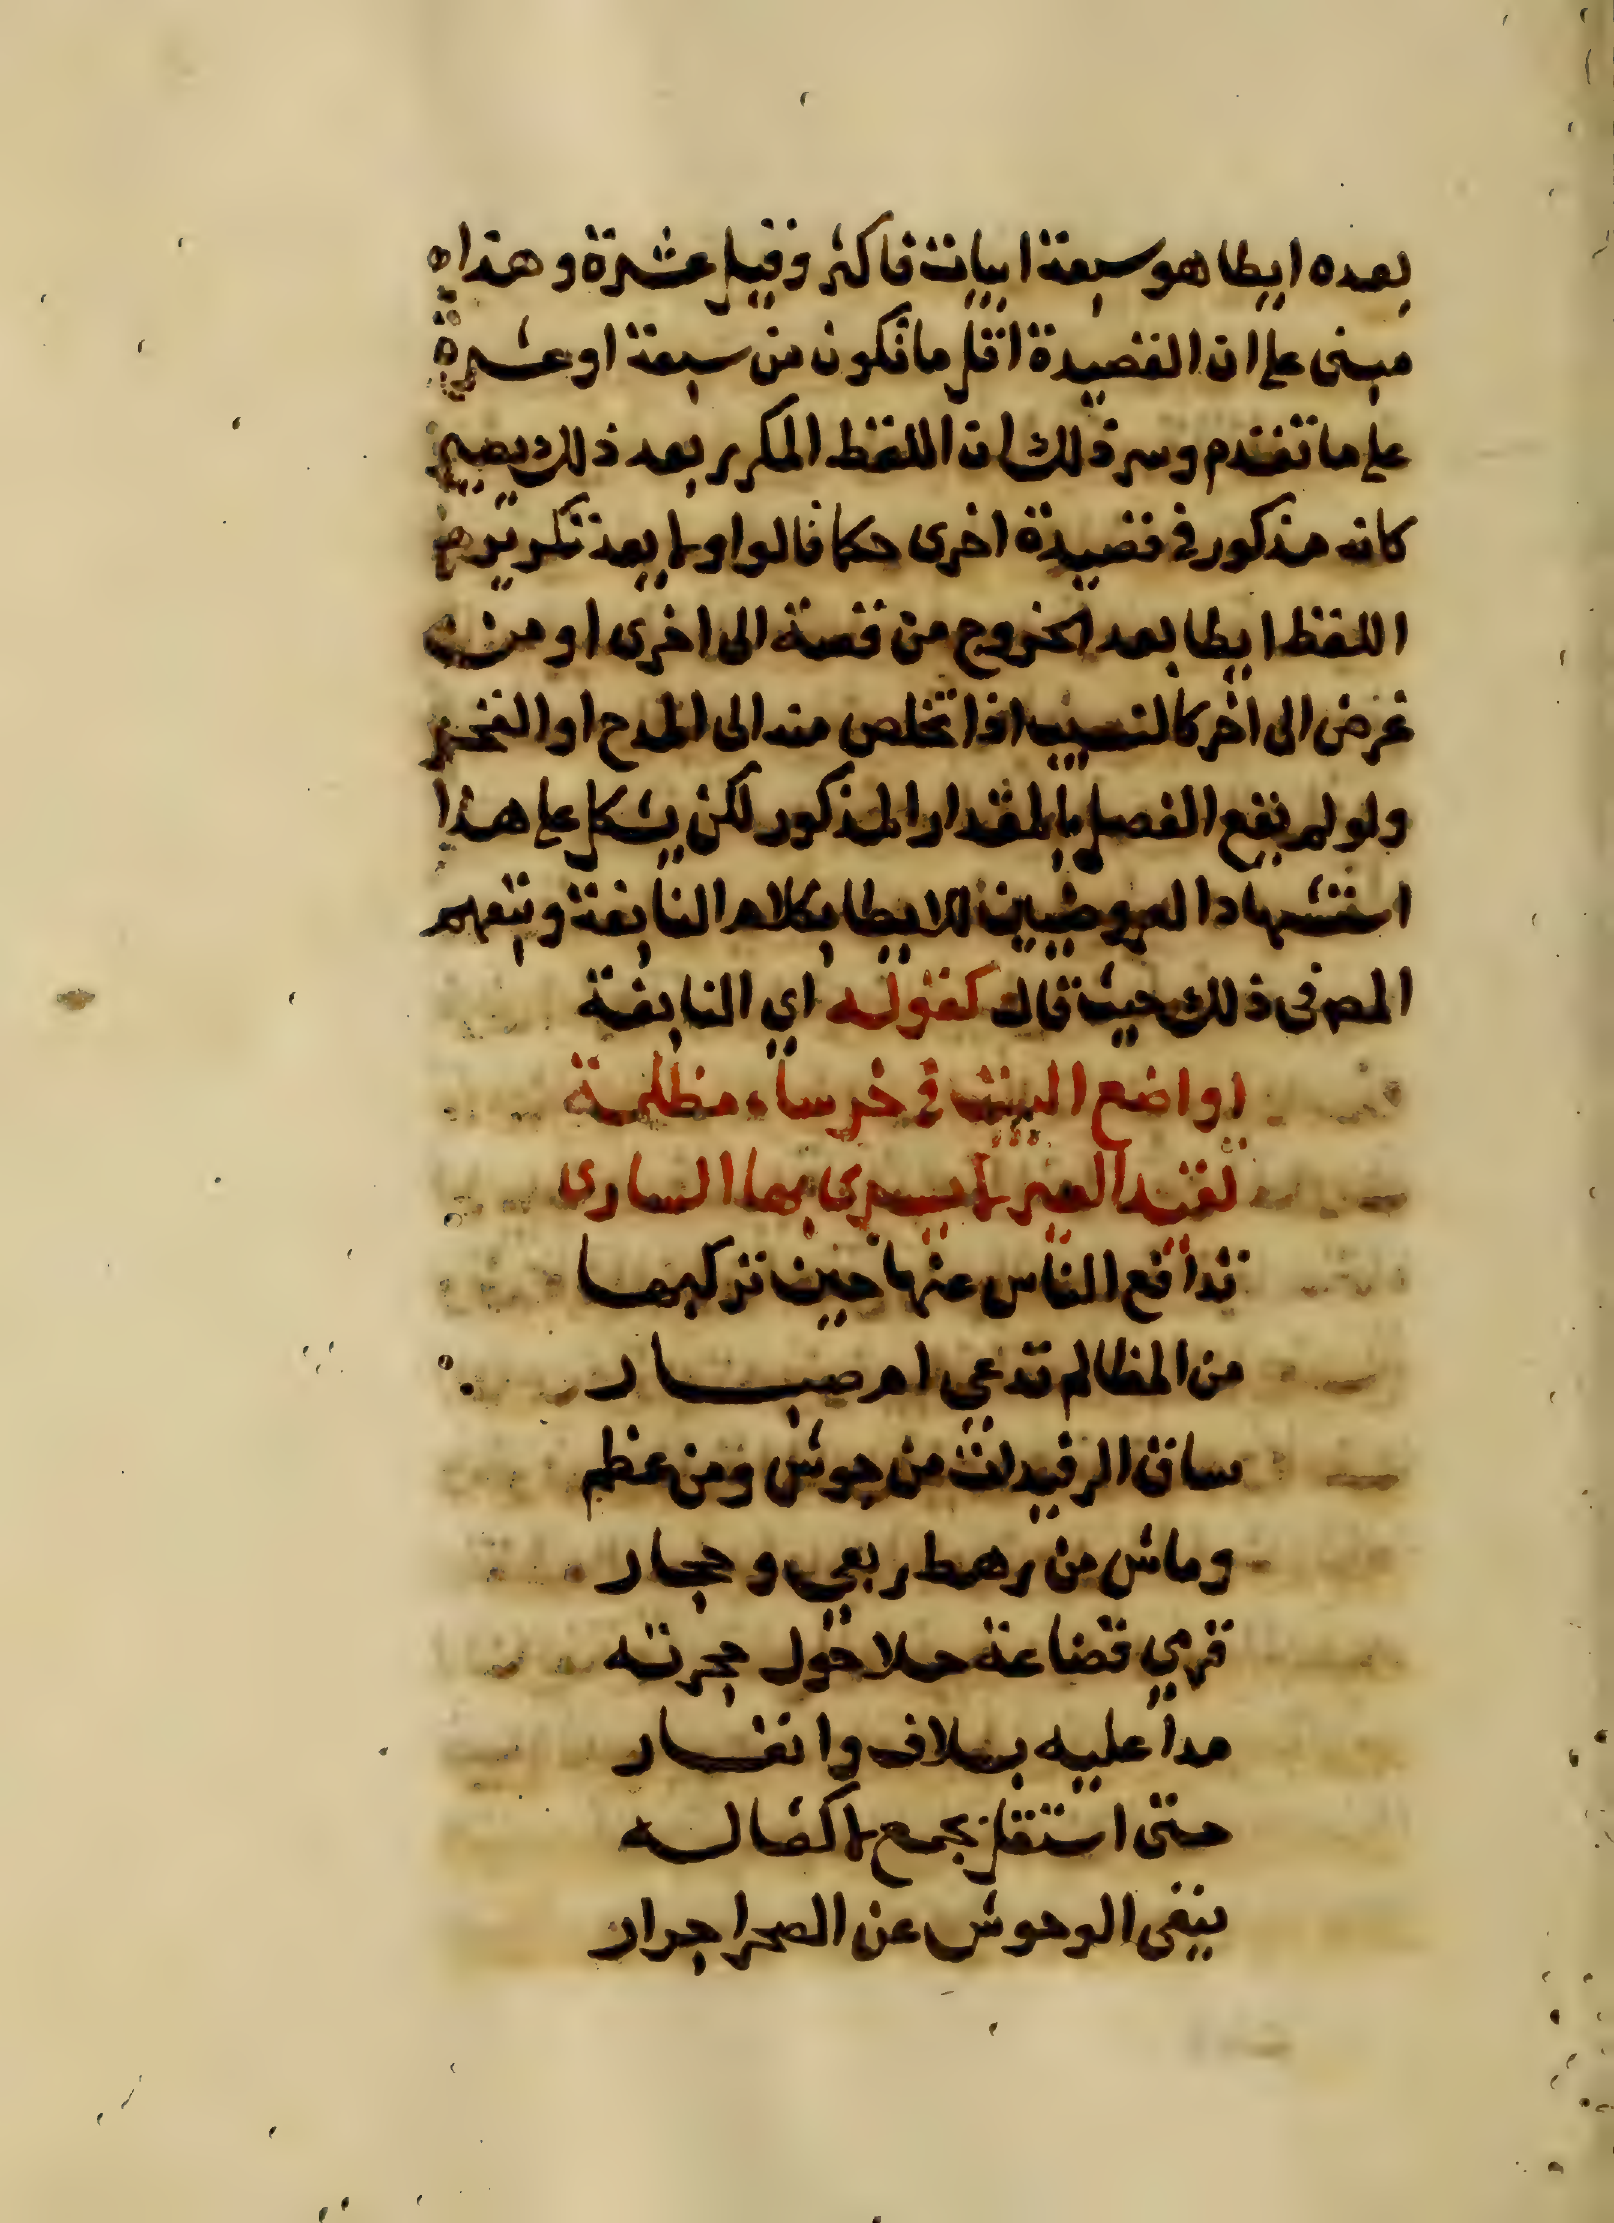 بعده ايطا هو سبعة ابيات فاكثر وقيل عشرة وهذا
مبنى على ان القصيدة اقل ما تكون من سبعة او عشرة
على ما تقدم وسر ذلك ان اللفظ المكرر بعد ذلك يصير
كانه مذكور في قصيدة اخرى حكا قالوا ولا يعد تكرير
اللفظ ايطا بعد الخروج من قصة الى اخرى او من
غرض الى اخر كالنسيب اذا تخلص منه الى المدح او الفخر
ولو لم يقع الفصل بالمقدار المذكور لكن يشكل على هذا
استشهاد العروضيين للايطا بكلام النابغة وتبعهم
المص في ذلك حيث قال كقوله اي النابغة
اواضع البيت في خرساء مظلمة
تقيد العير لا يسرى بها السارى
تدافع الناس عنها حين تركبها
من المظالم تدعي ام صبار
ساق الرفيدات من جوش ومن عظم
وماش من رهط ربعي وحجار
قرمي قضاعة حلا حول حجرته
مدا عليه بسلاف وانفار
حتى استقل بجمع لا كفا له
ينفى الوحوش عن الصحرا جرار